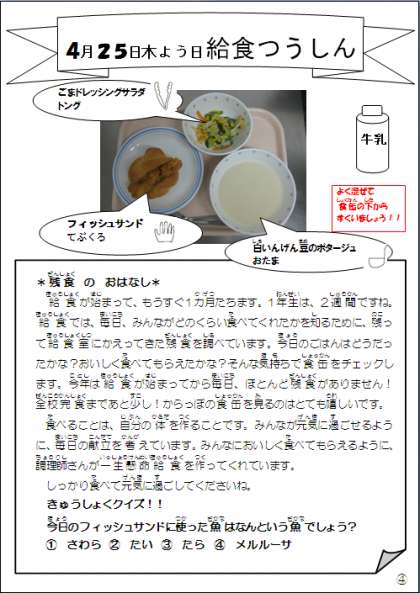 4月25日木よう日 給食つうしん
ごまドレッシングサラダ
トング
牛乳
よく混ぜて
食缶の下から
すくいましょう！！
フィッシュサンド
てぶくろ
白いんげん豆のポタージュ
おたま
＊残食 の おはなし＊
給食が始まって、もうすぐ1カ月たちます。1年生は、2週間ですね。
給食では、毎日、みんながどのくらい食べてくれたかを知るために、残っ
て給食室にかえってきた残食を調べています。今日のごはんはどうだっ
たかな？おいしく食べてもらえたかな？そんな気持ちで食缶をチェックし
ます。今年は給食が始まってから毎日、ほとんど残食がありません！
全校完食まであと少し！からっぽの食缶を見るのはとても嬉しいです。
食べることは、自分の体を作ることです。みんなが元気に過ごせるよう
に、毎日の献立を考えています。みんなにおいしく食べてもらえるように、
調理師さんが一生懸命給食を作ってくれています。
しっかり食べて元気に過ごしてくださいね。
きゅうしょくクイズ！！
今日のフィッシュサンドに使った魚はなんという魚でしょう？
① さわら ② たい ③ たら ④ メルルーサ
④